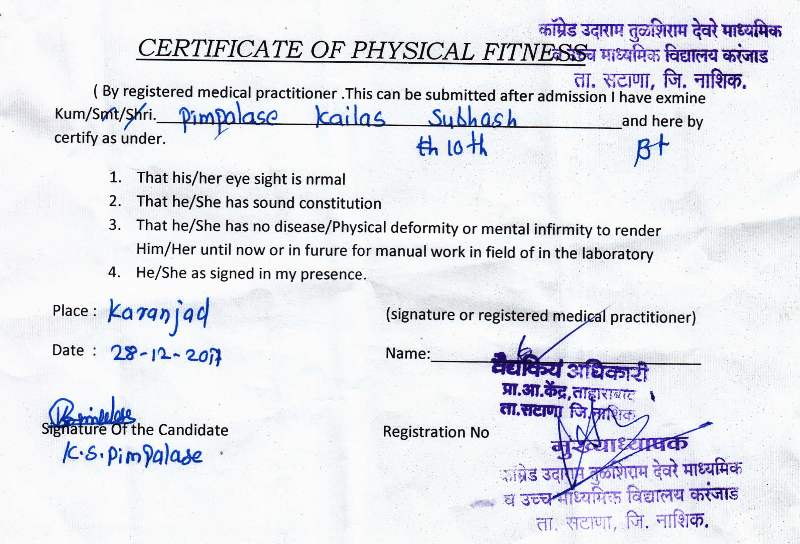 कॉम्रेड उदाराम तुळशिराम देवरे माध्यमिक
CERTIFICATE OF PHYSICAL FITNESS
व उच्च माध्यमिक विद्यालय करंजाड
ता. सटाणा, जि. नाशिक.
( By registered medical practitioner .This can be submitted after admission I have exmine
Kum/Smt/Shri. Pimpalase Kailas Subhash and here by
certify as under.
th 10th B+
1. That his/her eye sight is nrmal
2. That he/She has sound constitution
3. That he/She has no disease/Physical deformity or mental infirmity to render
Him/Her until now or in furure for manual work in field of in the laboratory
4. He/She as signed in my presence.
Place : Karanjad
(signature or registered medical practitioner)
Date : 28-12-2017
Name:
वैद्यकिय अधिकारी
प्रा.आ.केंद्र,ताहाराबाद
ता.सटाणा जि.नाशिक
Signature Of the Candidate
K.S.Pimpalase
Registration No
मुख्याध्यापक
कॉम्रेड उदाराम तुळशिराम देवरे माध्यमिक
व उच्च माध्यमिक विद्यालय करंजाड
ता. सटाणा, जि. नाशिक.